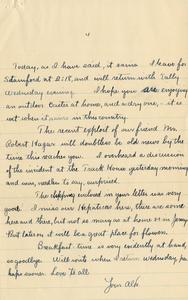 4
Today, as I have said, it rains. I leave for
Stamford at 2:18, and will return with Tally
Wednesday evening. I hope you are enjoying
an outdoor Easter at home, and a dry one, - it is
wet when it pours in this country.
The recent exploit of our friend Mr.
Robert Hagar will doubtless be old news by the
time this reaches you. I overheard a discussion
of the incident at the Track House yesterday morning
and was, needless to say, surprised.
The clipping enclosed in your letter was very
good. I miss our Hepaticas here, there are some
here and there, but not as many as at home or in Jersey.
But later on it will be a great place for flowers.
Breakfast time is very evidently at hand,
so goodbye. Will write when I return Wed., per-
haps sooner. Love to all
Your